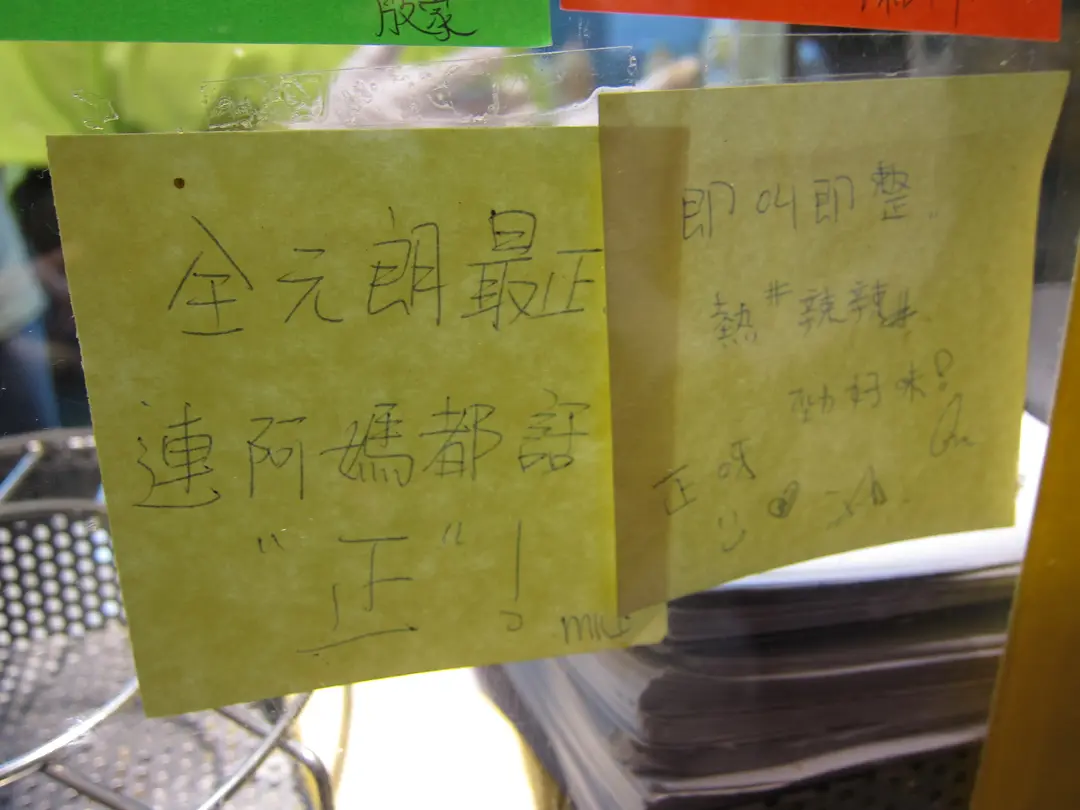 殷家
全元朗最正
連阿媽都話
"正"!
即叫即整..
熱辣辣
勁好味!
正呀